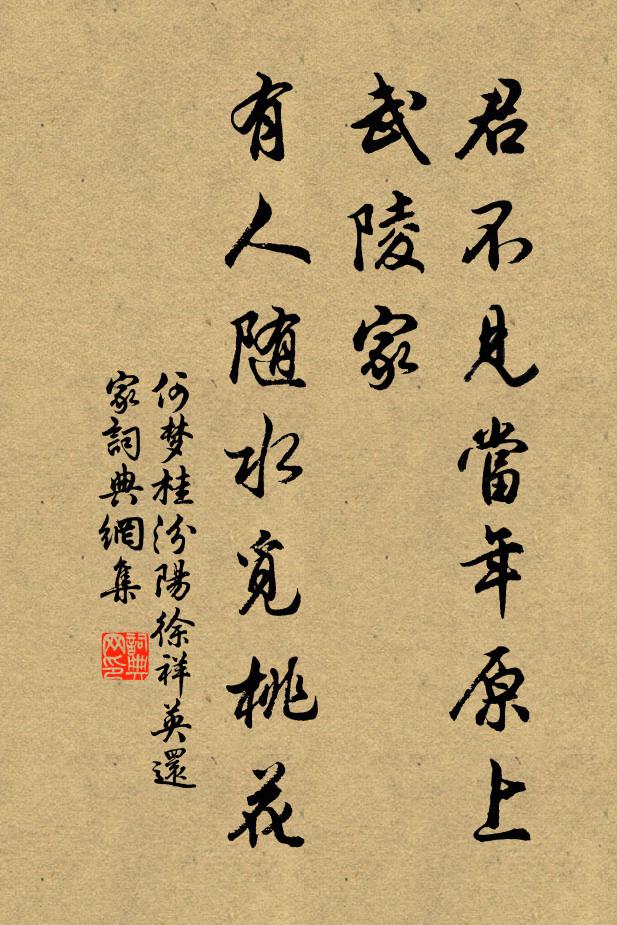 君不見當年原上
武陵家
有人随水覓桃花
何梦桂汾陽徐祥英還
家詞典網集
詞典网印